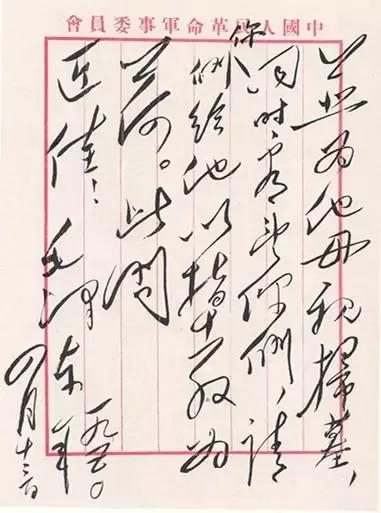 中國人民革命軍事委員會
並为他母親掃墓，
同时看望你们，请
你们给他以指教为
荷。此问
近佳！
毛泽东
一九五〇年
四月十三日